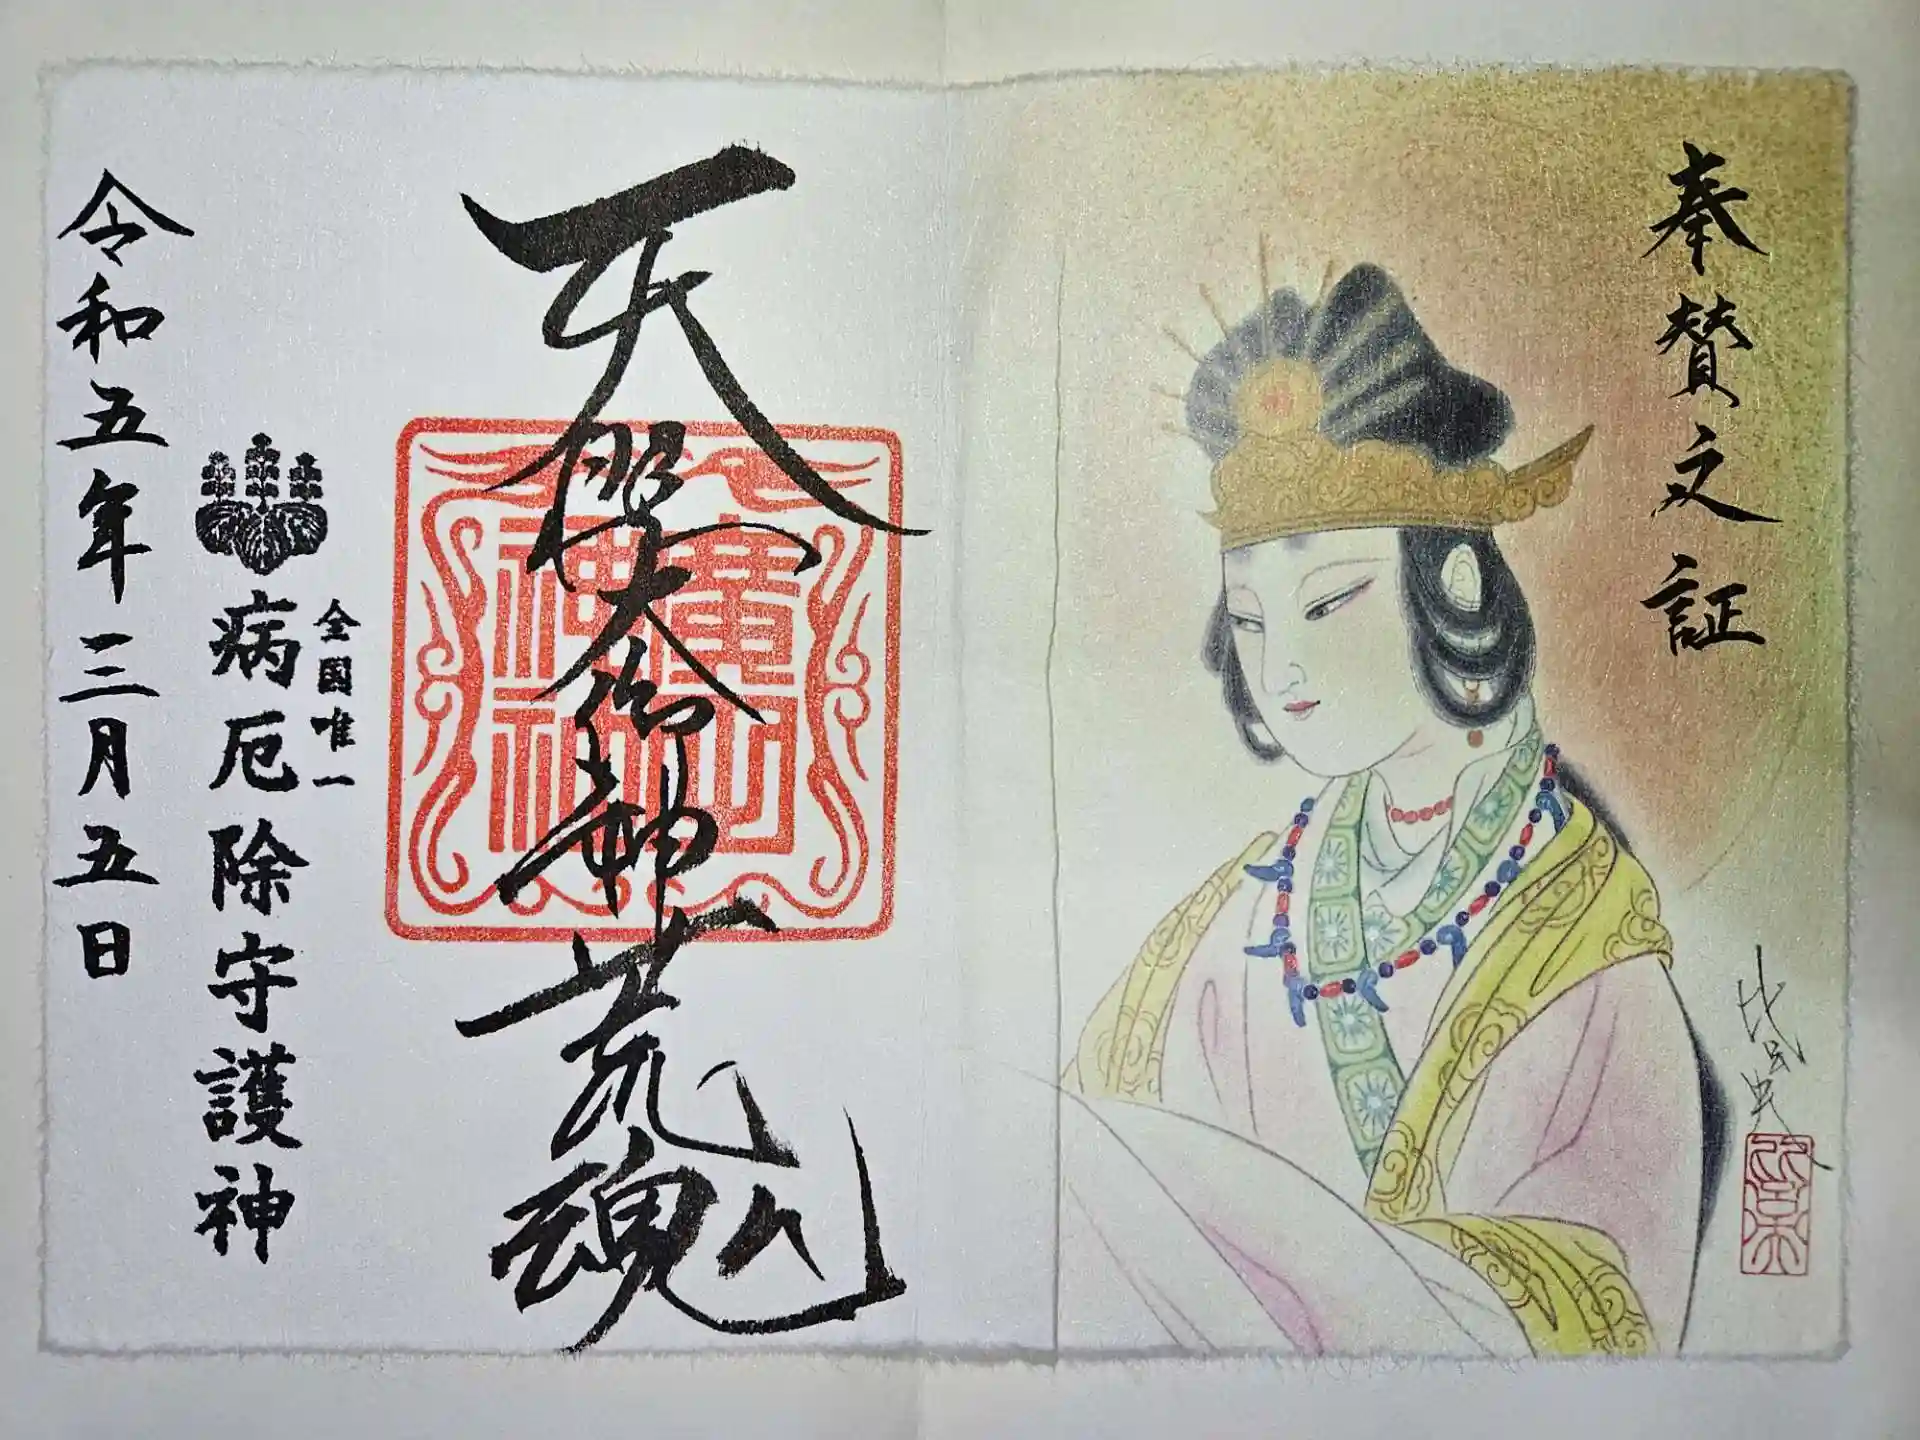 奉賛之証
天照大御神荒魂
廣田神社
全国唯一
病厄除守護神
令和五年三月五日